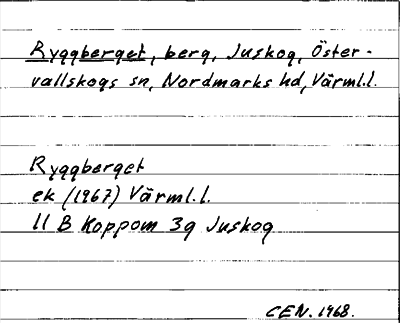 Ryggberget, berg, Juskog, Öster-
vallskogs sn, Nordmarks hd, Värml.l.
Ryggberget
ek (1967) Värml.l.
11 B Koppom 3g Juskog
CEN. 1968.